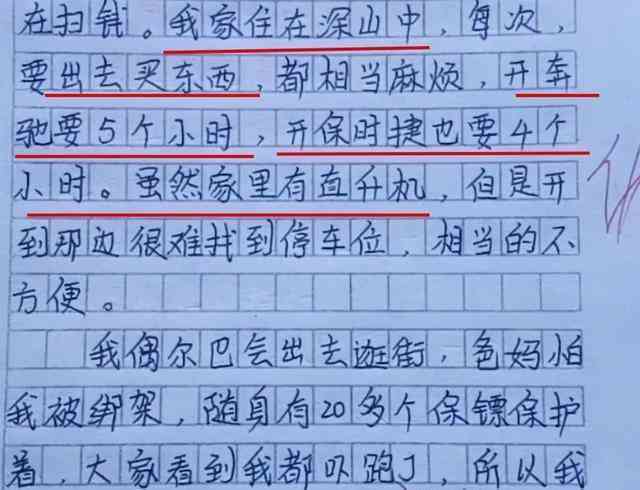 在扫钱。我家住在深山中，每次，
要出去买东西，都相当麻烦，开奔
驰要5个小时，开保时捷也要4个
小时。虽然家里有直升机，但是开
到那边很难找到停车位，相当的不
方便。
我偶尔巴会出去逛街，爸妈怕
我被绑架，随身有20多个保镖保护
着，大家看到我都吓跑了，所以我